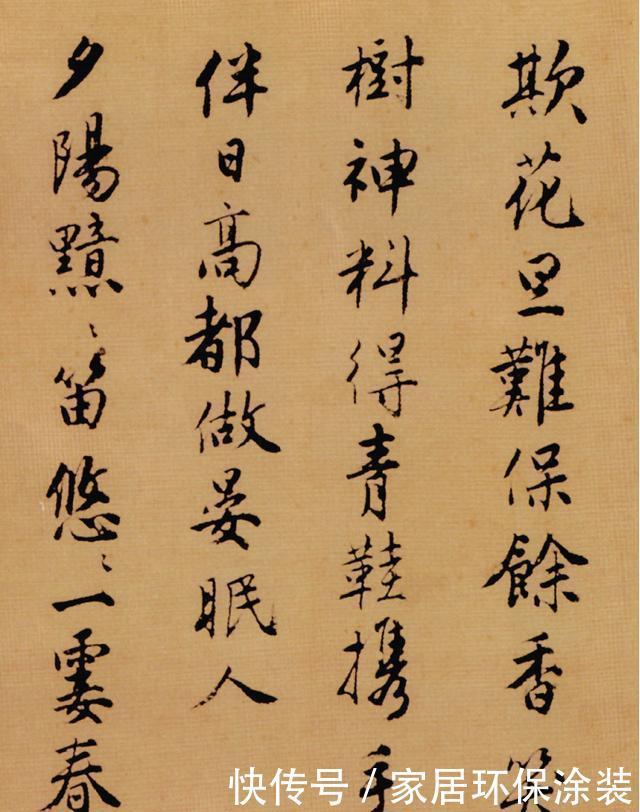 欺花旦難保餘香
樹神料得青鞋携手
伴日高都做晏眠人
夕陽黯〻笛悠〻一霎春
快传号 / 家居环保涂装